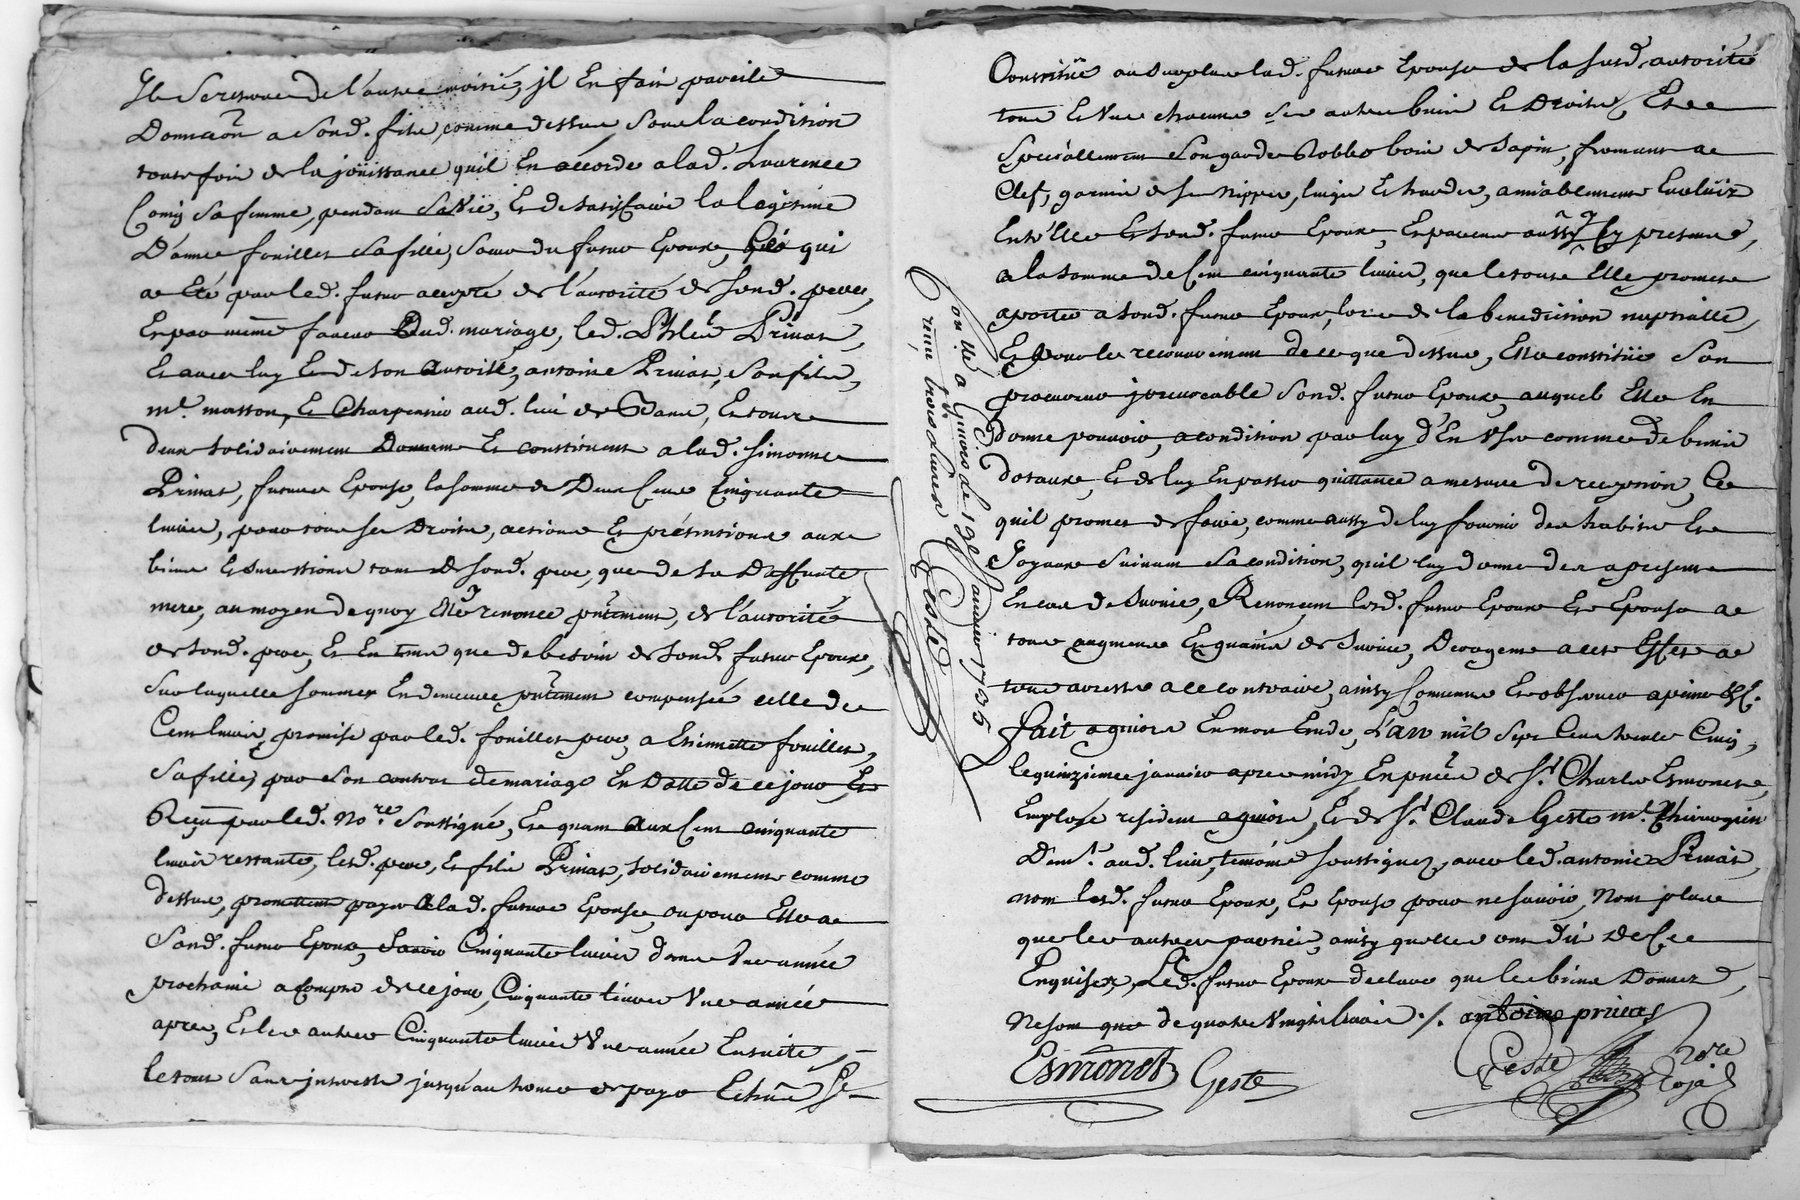 Se reserve de l'autre moitié, jl En fait pareile
Donnaõn a Sond. fils, comme dessus Sous la condition
toutefois de la joüissance quil En accorde a lad. Laurence
Comis Sa femme, pendant Sa Vie, Et de satisfaire la legitime
D'anne fouillet Sa fille, Sœur du futur Epoux, qui
a Eté par led. futur accepté de l'autorité de Sond. pere,
Et par meme faveur Dud. mariage, led. Privat,
Et avec luy Et de son autorité, antoine Privat, Son fils,
md. masson, Et Charpentier aud. lieu de Et tous
deux Solidairement Donnent Et constituent a lad. Simonne
Privat, future Epouse, la somme de Deux Cent Cinquante
livres, pour tous ses Droits, actions Et prétentions aux
biens Et successions tant de Sond. pere que de Sa Deffunte
mere, au moyen de quoy Elle renonce pñtement, de l'autorité
de Sond. pere, Et En tant que de besoin de Sond. futur Epoux,
Sur laquelle somme En demeure pñtement compensée celle de
Cent livres, promise par led. fouillet pere, a Etiennette fouillet,
Sa fille, par Son contrat de mariage En Datte de ce jour Et
Reçu par led. Nore. Soussigné, Et quant aux Cent Cinquante
livres restante, lesd. pere, Et fils Privat, Solidairement comme
dessus, promettent payer a lad. future Epouse, ou pour Elle a
Sond. futur Epoux, Savoir Cinquante livres dans Une année
prochaine a Compter de ce jour, Cinquante livres Une année
apres, Et les autres Cinquante livres Une année Ensuite,
le tout Sans jnterests jusqu'au terme de paye Echeu Se
Constitüe au Surplus lad. future Epouse de la Susd. autorité
tous Et Un chacuns Ses autres biens Et Droits, Et
Specialement Son garderobbe bois de Sapin, fermant a
Clef, garnie de Se Nippes, linges Et hardes, amiablement Evalüéz
Entr'Elle Et Sond. futur Epoux, Et parens aussy Cy presents,
a la Somme de Cent cinquante livres, que le tout Elle promet
aporter a Sond. futur Epoux, lors de la benediction nuptialle,
Et pour le recouvrement de ce que dessus, Elle constitüe Son
procureur jrrevocable Sond. futur Epoux, auquel Elle En
donne pouvoir, a condition par luy d'En User comme de biens
dotaux, Et de luy En passer quittance a mesure de reception, Ce
quil promet de faire, comme aussy de luy fournir des habits Et
Joyaux Suivant Sa condition, quil luy donne des a present
En cas de Survie, Renoncent lesd. futur Epoux Et Epouse a
tous augment Et gains de Survie, Derogeant a cet Effet a
tous a ce contraire, ainsy Convenu Et observer a peine &c.
Fait a gniors En mon Etude, L'an mil Sept Cent trente Cinq,
le quinzieme janvier apres midy, En pñce de Sr. Charles Esmonot,
Employé resident a gniors, Et de Sr. Claude Geste mt. Chirurgien
Dem.t aud. lieu, temoins soussignez, avec led. antoine Privat,
non lesd. futur Epoux, Et Epouse pour ne Savoir, Non plus
que les autres parties, ainsy quelles ont dit De Ce
Enquises, Led. futur Epoux declare que les biens Donnez
Ne sont que de quatre Vingt livres ./. antoine privat
Esmonot Geste
Geste Nore
Royal
Conllé a Gniors le 19e Janvier 1735
reçu trois livres
Geste